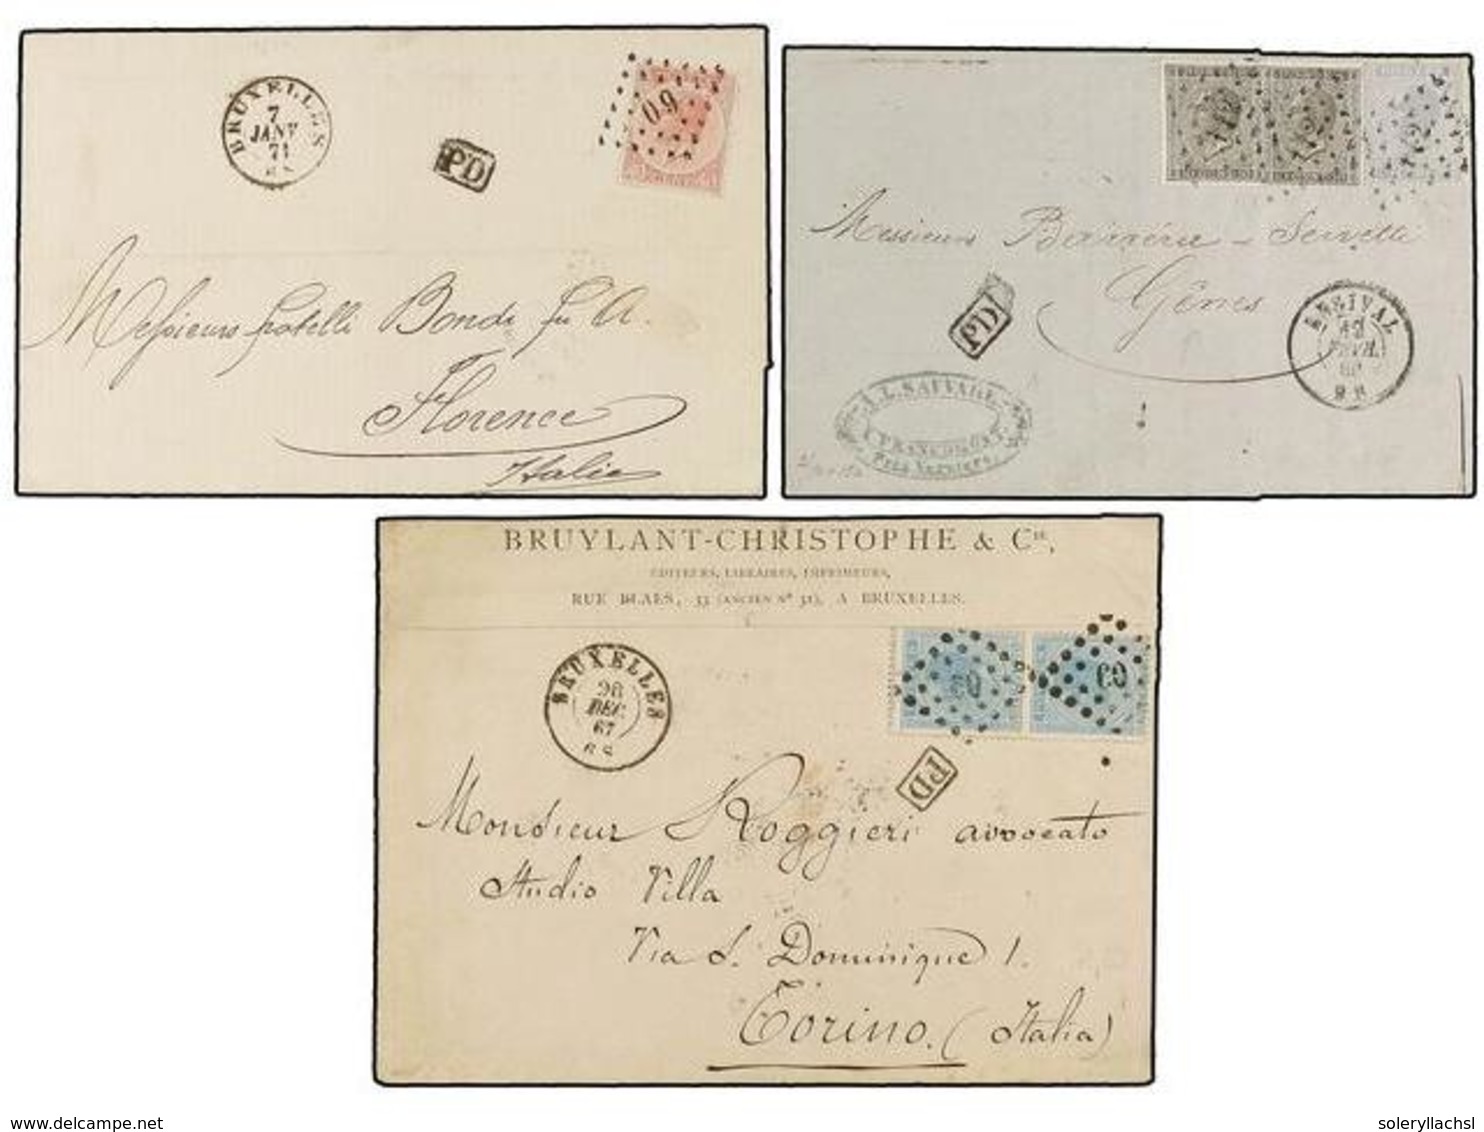 BRUXELLES
7
JANV
71
PD
60
Messieurs fratelli Bondi fu A.
Florence
Italie
112
112
112
Messieurs Barrérie
Gênes
PD
ENSIVAL
12
FEVR.
J.L. SAUVAGE.
A FRANCOMONT.
Près Verviers.
BRUYLANT-CHRISTOPHE & Cie,
EDITEURS, LIBRAIRES, IMPRIMEURS,
RUE BLAES, 33 (ANCIEN N° 31), A BRUXELLES.
BRUXELLES
28
DEC
67
6 S
60
60
PD
Monsieur Roggieri avvocato
Studio Villa
Via S. Dominique 1.
Torino. (Italia)
www.delcampe.net
soleryllachsl